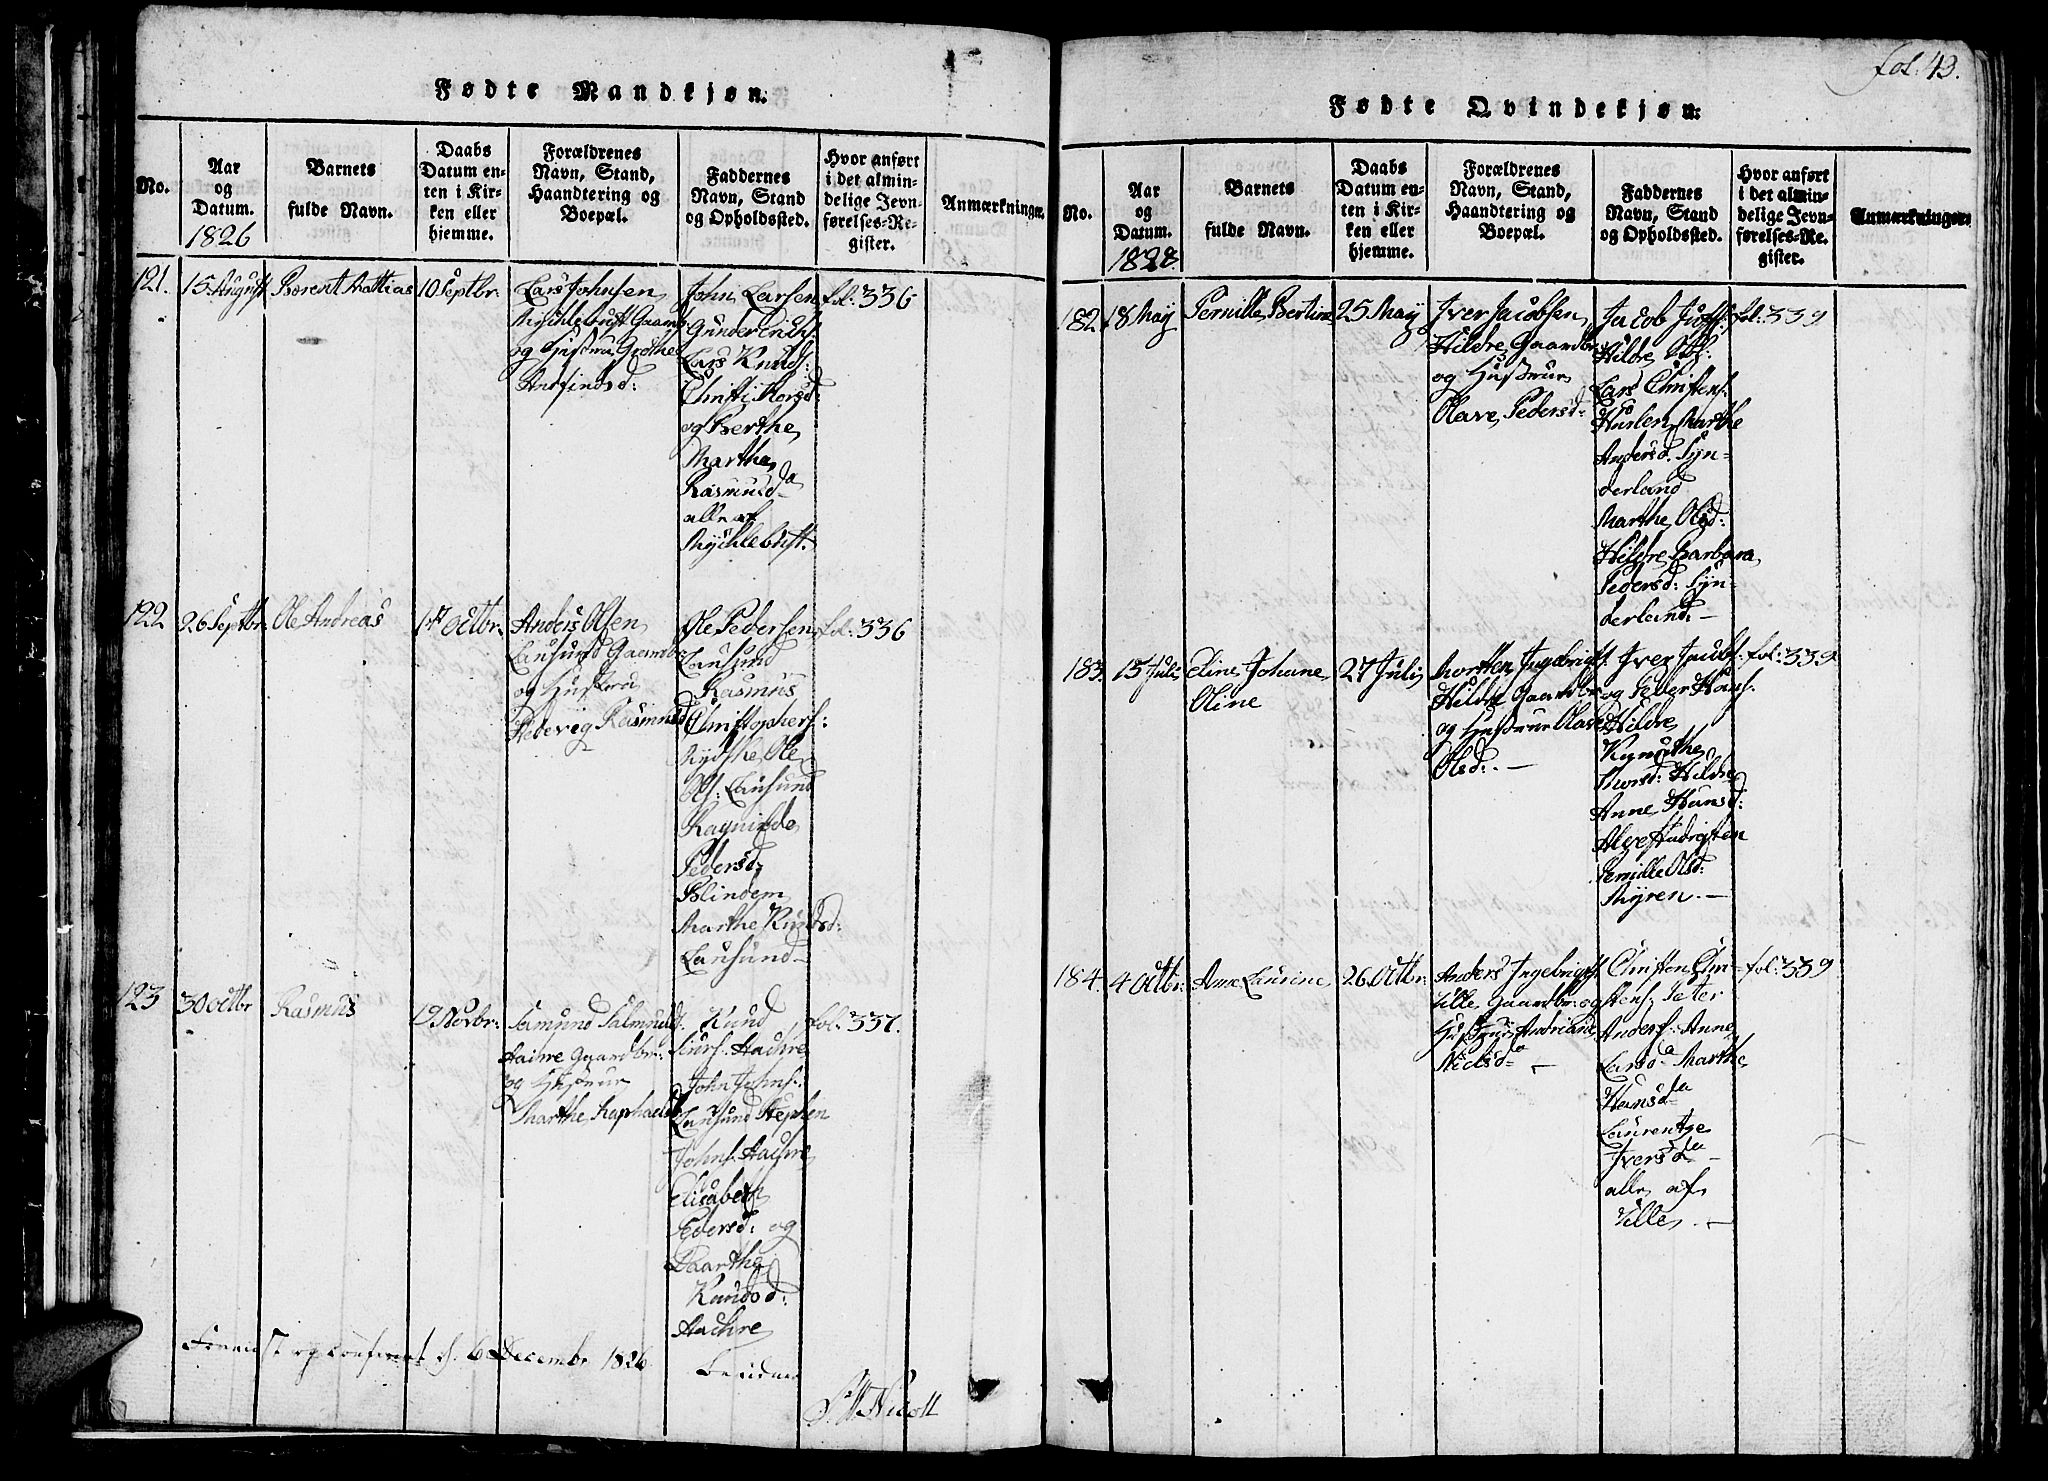 Fødte Mandkjøn.
No.
Aar
og
Datum.
1826
Barnets
fulde Navn.
Daabs
Datum en-
ten i Kir-
ken eller
hjemme.
Forældrenes
Navn, Stand,
Haandtering og
Boepæl.
Faddernes
Navn, Stand
og Opholdssted.
Hvor anført
i det almin-
delige Jevn-
førelses-Re-
gister.
Anmærkninger.
121.
15 August
Berent Mattias
10 Septbr:
Lars Johnsen
Mychlebust Gaardb
og Hustru Grethe
Anfindsd:
John Larsen
Gunder Endr:
Lars Knuds:
Christi Torsd:
og Berthe
Marthe
Rasmusda
alle af
Mychlebust.
fol: 336
122
26 Septbr
Ole Andreas
1ste Octbr:
Anders Olsen
Lausund Gaardbr
og Hustru
Hedevig Rasmusd
Ole Pedersen
Lausund
Rasmus
Christophers:
Ole
Ols: Lausund
Ragnilde
Pedersd:
Blindem
Marthe Knudsd:
Lausund
fol: 336
123
30 Octbr
Rasmus
19 Novbr:
Samund Salmunds
Hachre Gaardbr:
og Hustrue
Marthe Raphaelsd
Knud
Siurs: Hachre
John Johns:
Lausund Stephen
Johns: Hachre
Elisabeth
Pedersd: og
Baarthe
Knudsd:
Hachre
fol: 337.
og confereret d. 6 December 1826.
fol: 43.
Fødte Qvindekjøn.
No.
Aar
og
Datum.
1828.
Barnets
fulde Navn.
Daabs
Datum en-
ten i Kir-
ken eller
hjemme.
Forældrenes
Navn, Stand,
Haandtering og
Boepæl.
Faddernes
Navn, Stand
og Opholdssted.
Hvor anført
i det almin-
delige Jevn-
førelses-Re-
gister.
Anmærkninger.
182
18 May
Pernille Bertine
25 May
Iver Jacobsen
Hildre Gaardbr
og Hustrue
Olave Pedersd:
Jacob
Hildre
Lars Christens:
Hurlen Marthe
Andersd. Syn-
derland
Marthe Olsd:
Hildre Barbara
Pedersd: Syn-
derland. —
fol: 339
183.
15 Juli
Eline Johane
Oline
27 Juli
Morten Ingebrigts:
Hildre Gaardbr
og Hustrue Olave
Olsd:. —
Iver Jacobs:
og Peder Hans:
Hildre
Thorsd: Hildre
Anne Hansd:
Pernille Olsd:
Myren. —
fol: 339
184.
4 Octbr:
Ane Laurine
26 Octbr:
Anders Ingebrigts:
Ulle Gaardbr: og
Hustrue Andriane
Nielsda —
Christen Chri-
stens: Peter
Anders: Anne
Larsda Marthe
Hansda
Laurentze
Iversda
alle af
Ulle. —
fol: 339